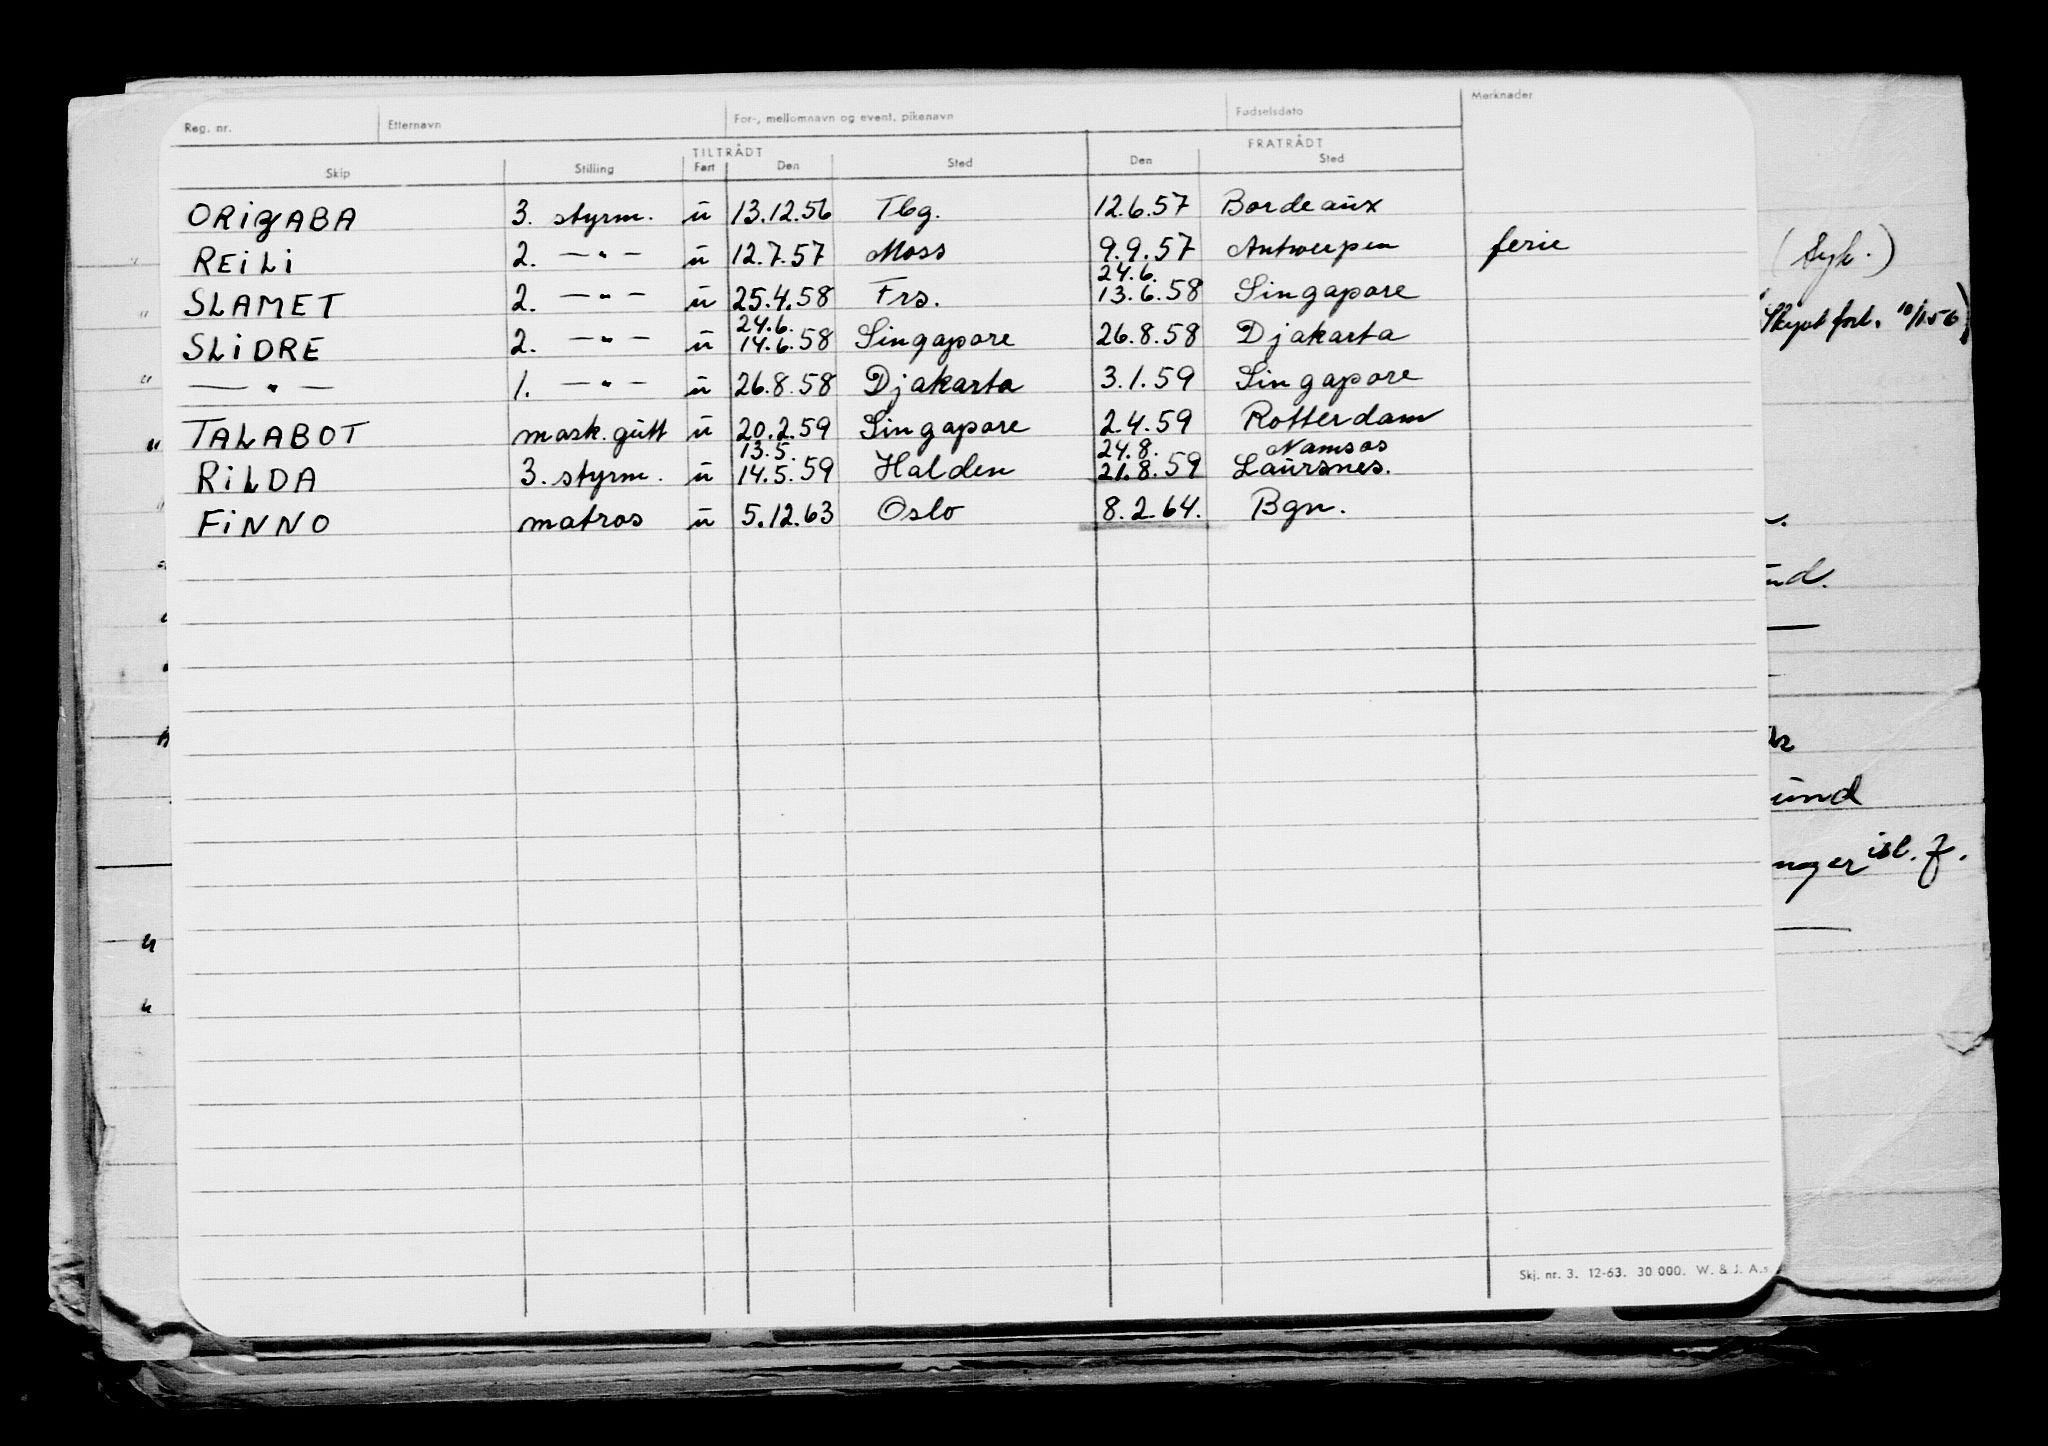 Reg. nr. Etternavn For-, mellomnavn og event. pikenavn Fødselsdato Merknader
TILTRÅDT FRATRÅDT
Skip Stilling Fart Den Sted Den Sted
ORIZABA 3. styrm. u 13.12.56 Tbg. 12.6.57 Bordeaux
REILI 2. — " — u 12.7.57 Moss 9.9.57 Antwerpen ferie
24.6.
SLAMET 2. — " — u 25.4.58 Frs. 13.6.58 Singapore
24.6.
SLIDRE 2. — " — u 14.6.58 Singapore 26.8.58 Djakarta
— " — 1. — " — u 26.8.58 Djakarta 3.1.59 Singapore
TALABOT mask. gutt u 20.2.59 Singapore 2.4.59 Rotterdam
13.5. 24.8. Namsos
RILDA 3. styrm. u 14.5.59 Halden 21.8.59 Laursnes.
FINNO matros u 5.12.63 Oslo 8.2.64. Bgn.
(Syk.)
10/1.56)
nd.
und
nger isl. f.
Skj. nr. 3. 12-63. 30 000. W. & J. A.s